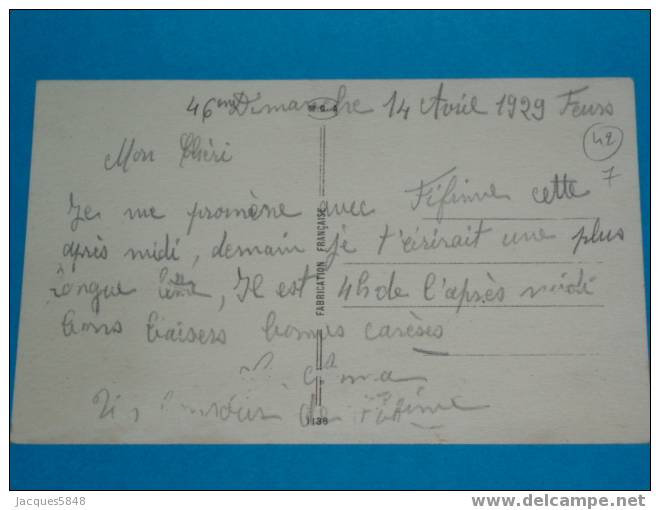 46em Dimanche 14 Avril 1929 Feurs
42
7
Mon Chéri
Je me promène avec Fifinne cette
après midi, demain je t'écrirait une plus
longue lettre, Il est 4h de l'après midi
bons baisers bonnes careses
de Fifinne
FABRICATION FRANÇAISE
1138
Jacques5848
www.delcampe.net